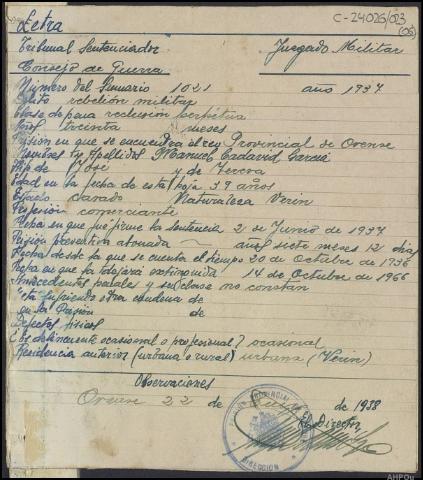 C-24026/023
(06)
Letra
Tribunal Sentenciador Juzgado Militar
Consejo de Guerra
Número del Sumario 1021 año 1937
Delito rebelión militar
Clase de pena reclusión perpétua
Años treinta meses
Prisión en que se encuentra el reo Provincial de Orense
Nombres y Apellidos Manuel Cadavid García
Hijo de José y de Teresa
Edad en la fecha de esta hoja 39 años
Estado casado Naturaleza Verin
Profesión comerciante
Fecha en que fué firme la sentencia 2 de Junio de 1937
Prisión preventiva abonada — años siete meses 12 dias
Fecha desde la que se cuenta el tiempo 20 de Octubre de 1936
Fecha en que la dejará extinguida 14 de Octubre de 1966
Antecedentes penales y su clase no constan
Está sufriendo otra condena de
en la Prisión de
Defectos físicos
¿Es delincuente ocasional o profesional? ocasional
Residencia anterior (urbana o rural) urbana (Verin)
Observaciones
Orense 22 de de 1938
El Director,
DIRECCION
AHPOu